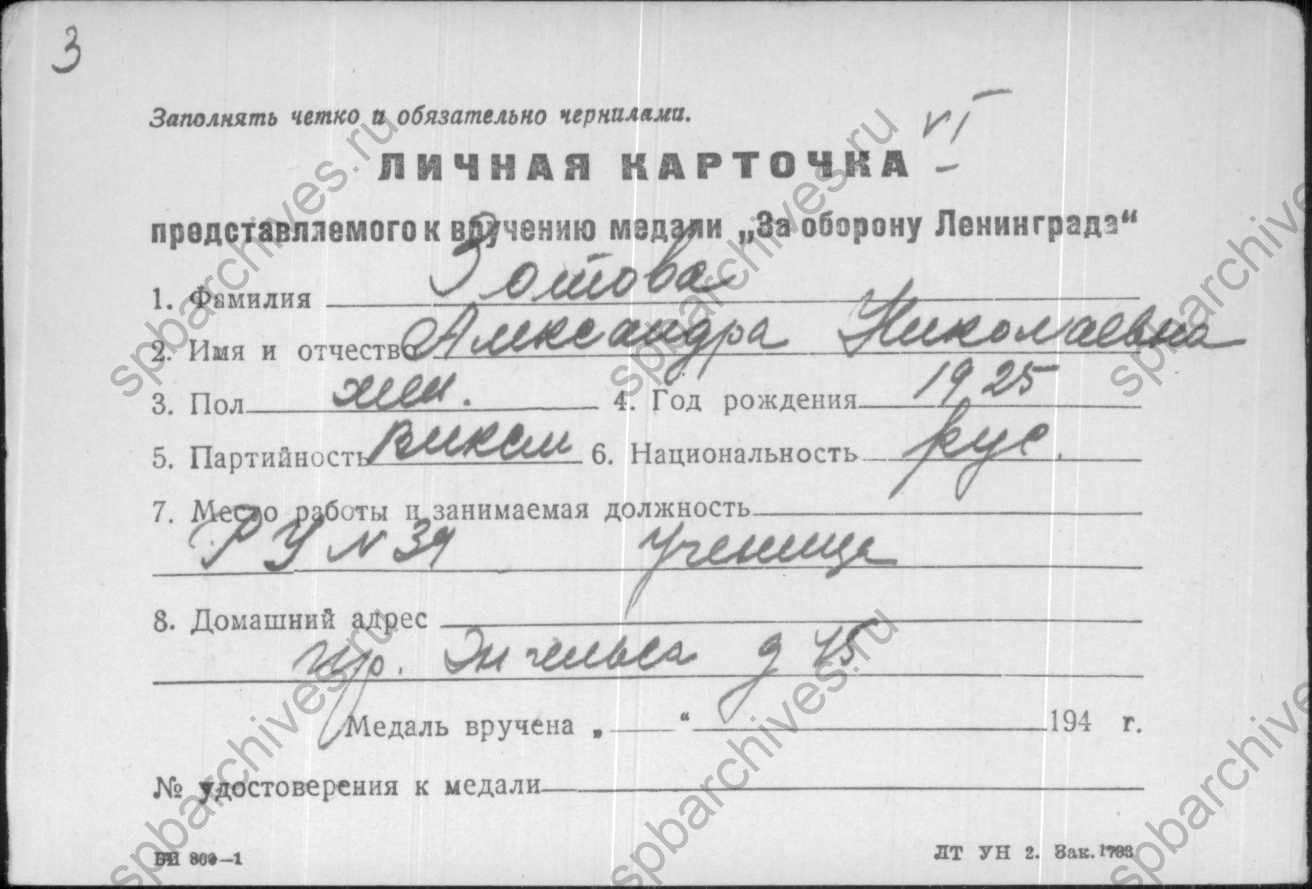 З
Заполнять четко и обязательно чернилами.
VI
ЛИЧНАЯ КАРТОЧКА
представляемого к вручению медали „За оборону Ленинграда“
1. Фамилия Зотова
2. Имя и отчество Александра Николаевна
3. Пол жен. 4. Год рождения 1925
5. Партийность влксм 6. Национальность рус.
7. Место работы и занимаемая должность
РУ N 39 ученица
8. Домашний адрес
пр. Энгельса д 45
Медаль вручена „ “ 194 г.
№ удостоверения к медали
ЛТ УН 2. Зак.
spbarchives.ru
spbarchives.ru
spbarchives.ru
spbarchives.ru
spbarchives.ru
spbarchives.ru